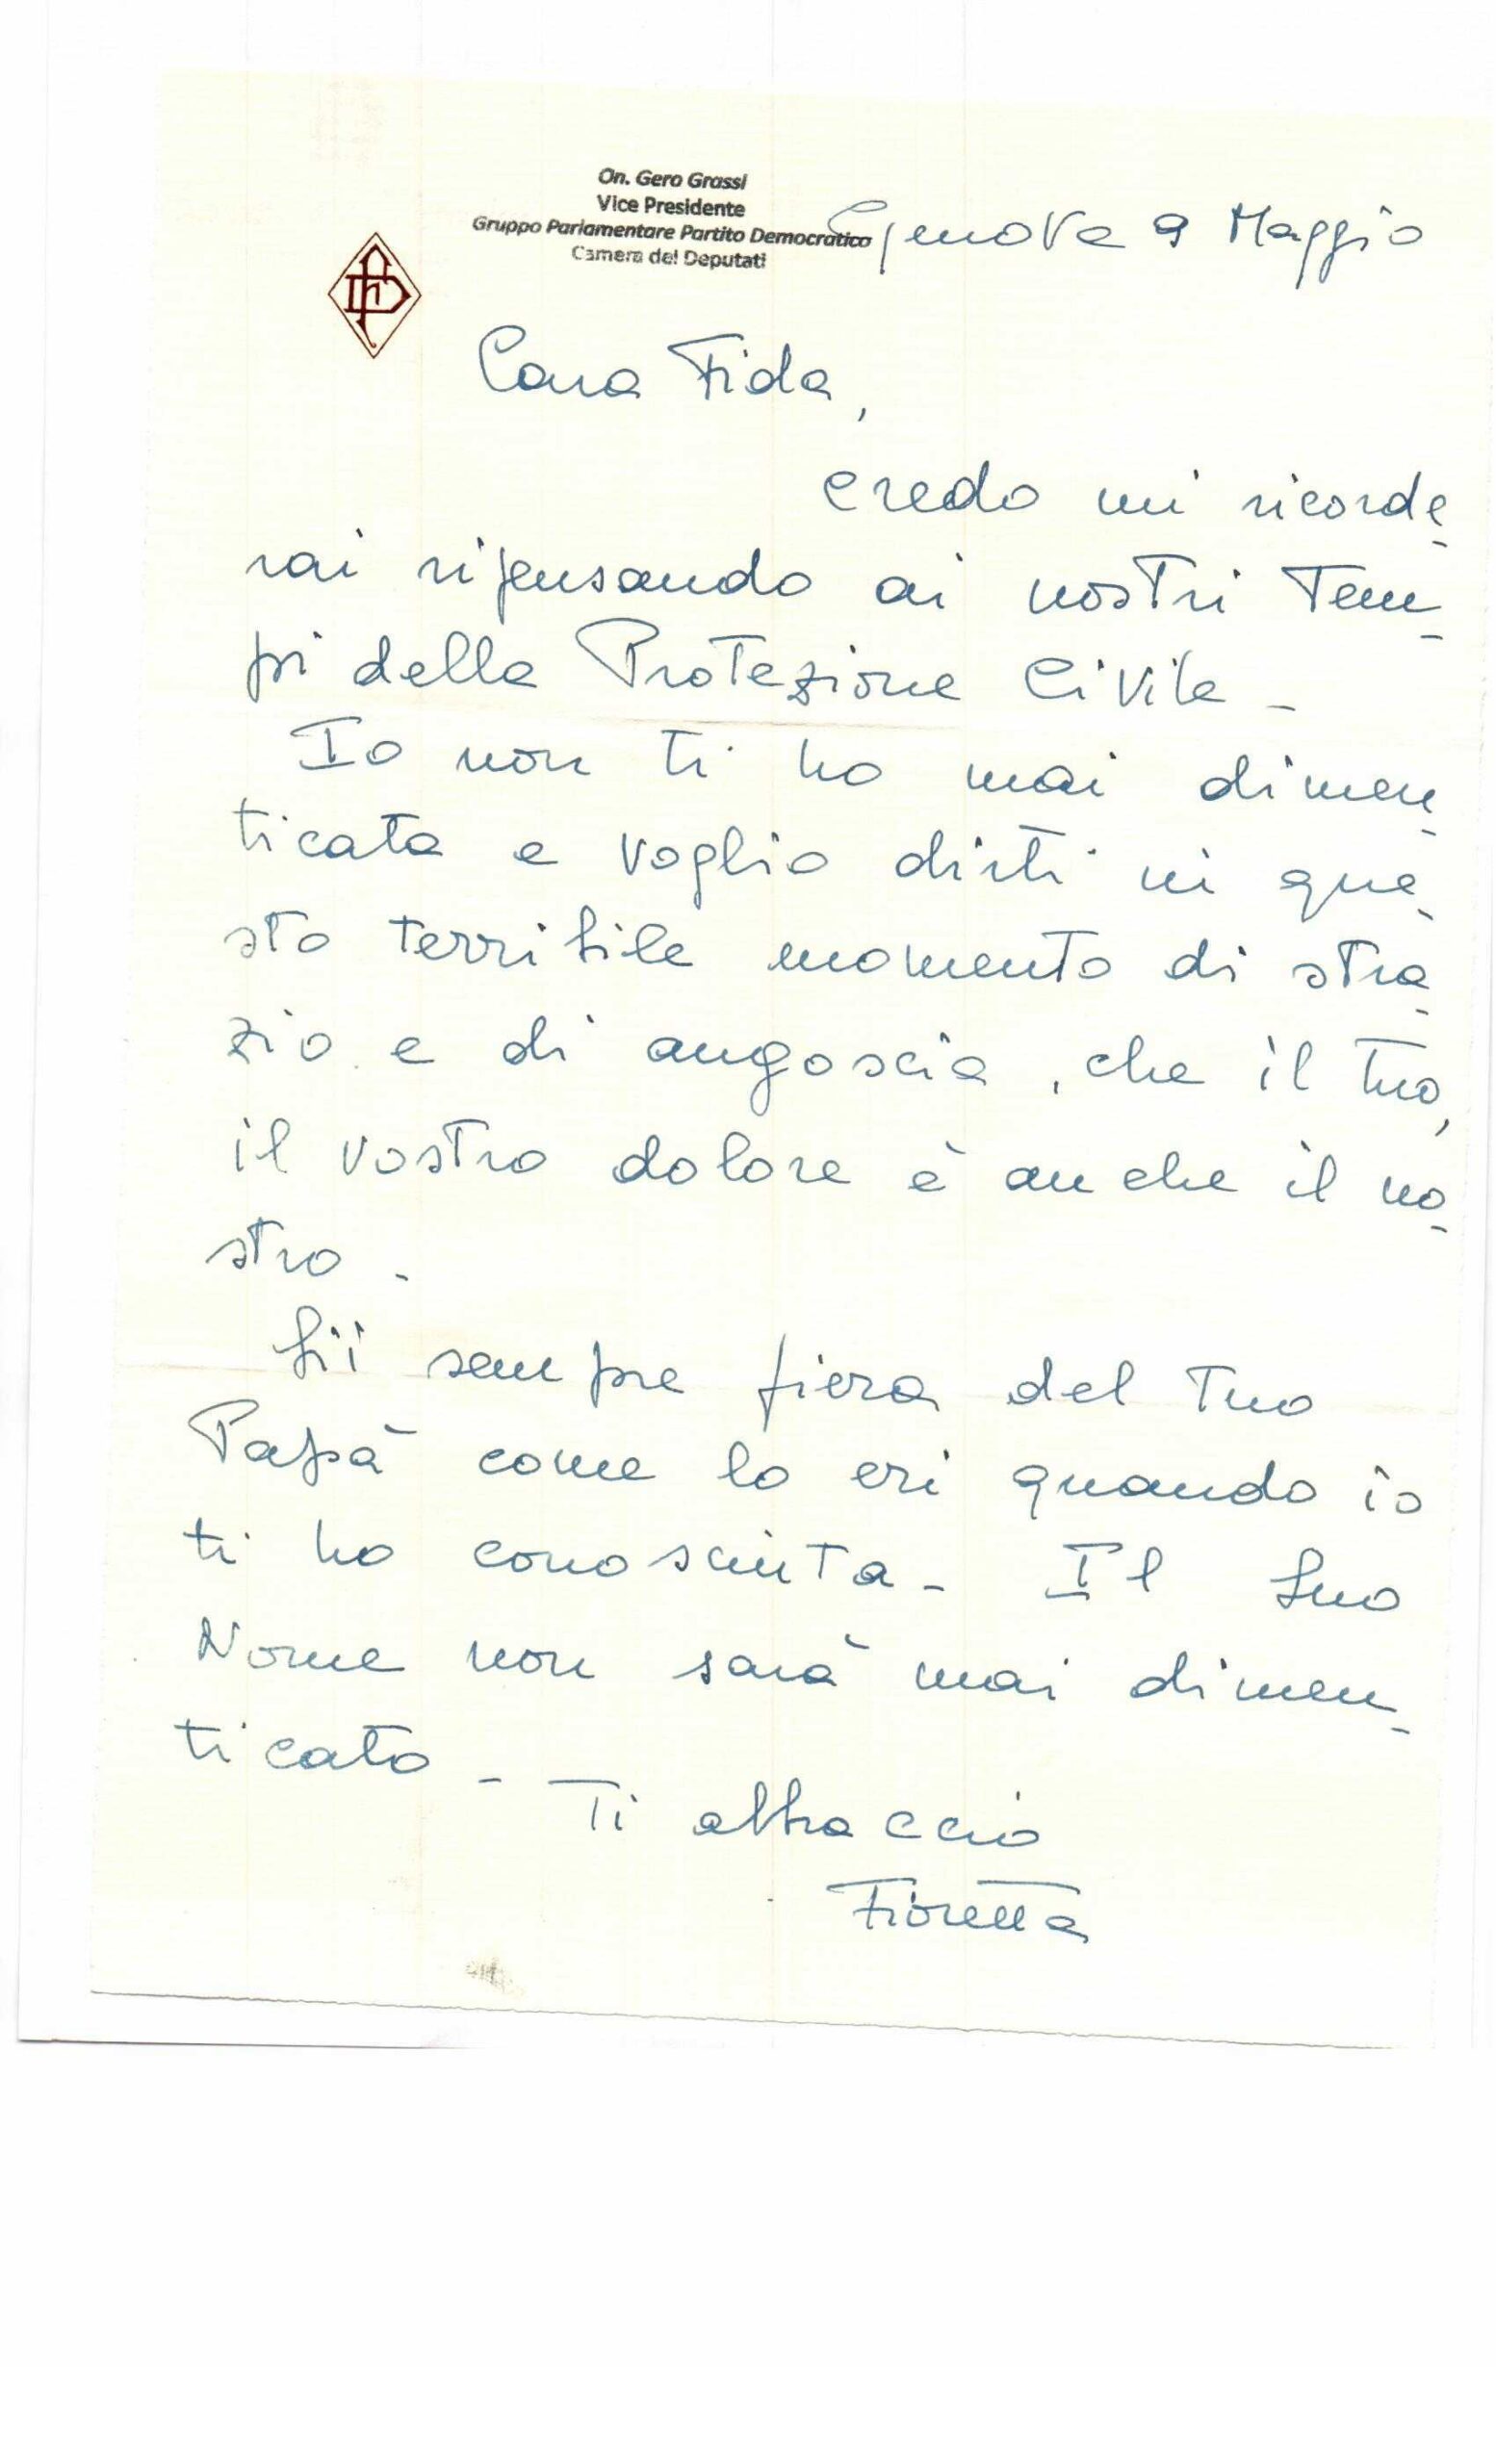 On. Gero Grassi
Vice Presidente
Gruppo Parlamentare Partito Democratico
Camera dei Deputati
Genova 9 Maggio
Cara Fida,
credo mi ricorde-
rai ripensando ai nostri tem-
pi della Protezione Civile -
Io non ti ho mai dimen-
ticata e voglio dirti in que-
sto terribile momento di stra-
zio e di angoscia, che il tuo,
il vostro dolore è anche il no-
stro -
Sii sempre fiera del tuo
Papà come lo eri quando io
ti ho conosciuta - Il Suo
Nome non sarà mai dimen-
ticato - Ti abbraccio
Fioretta